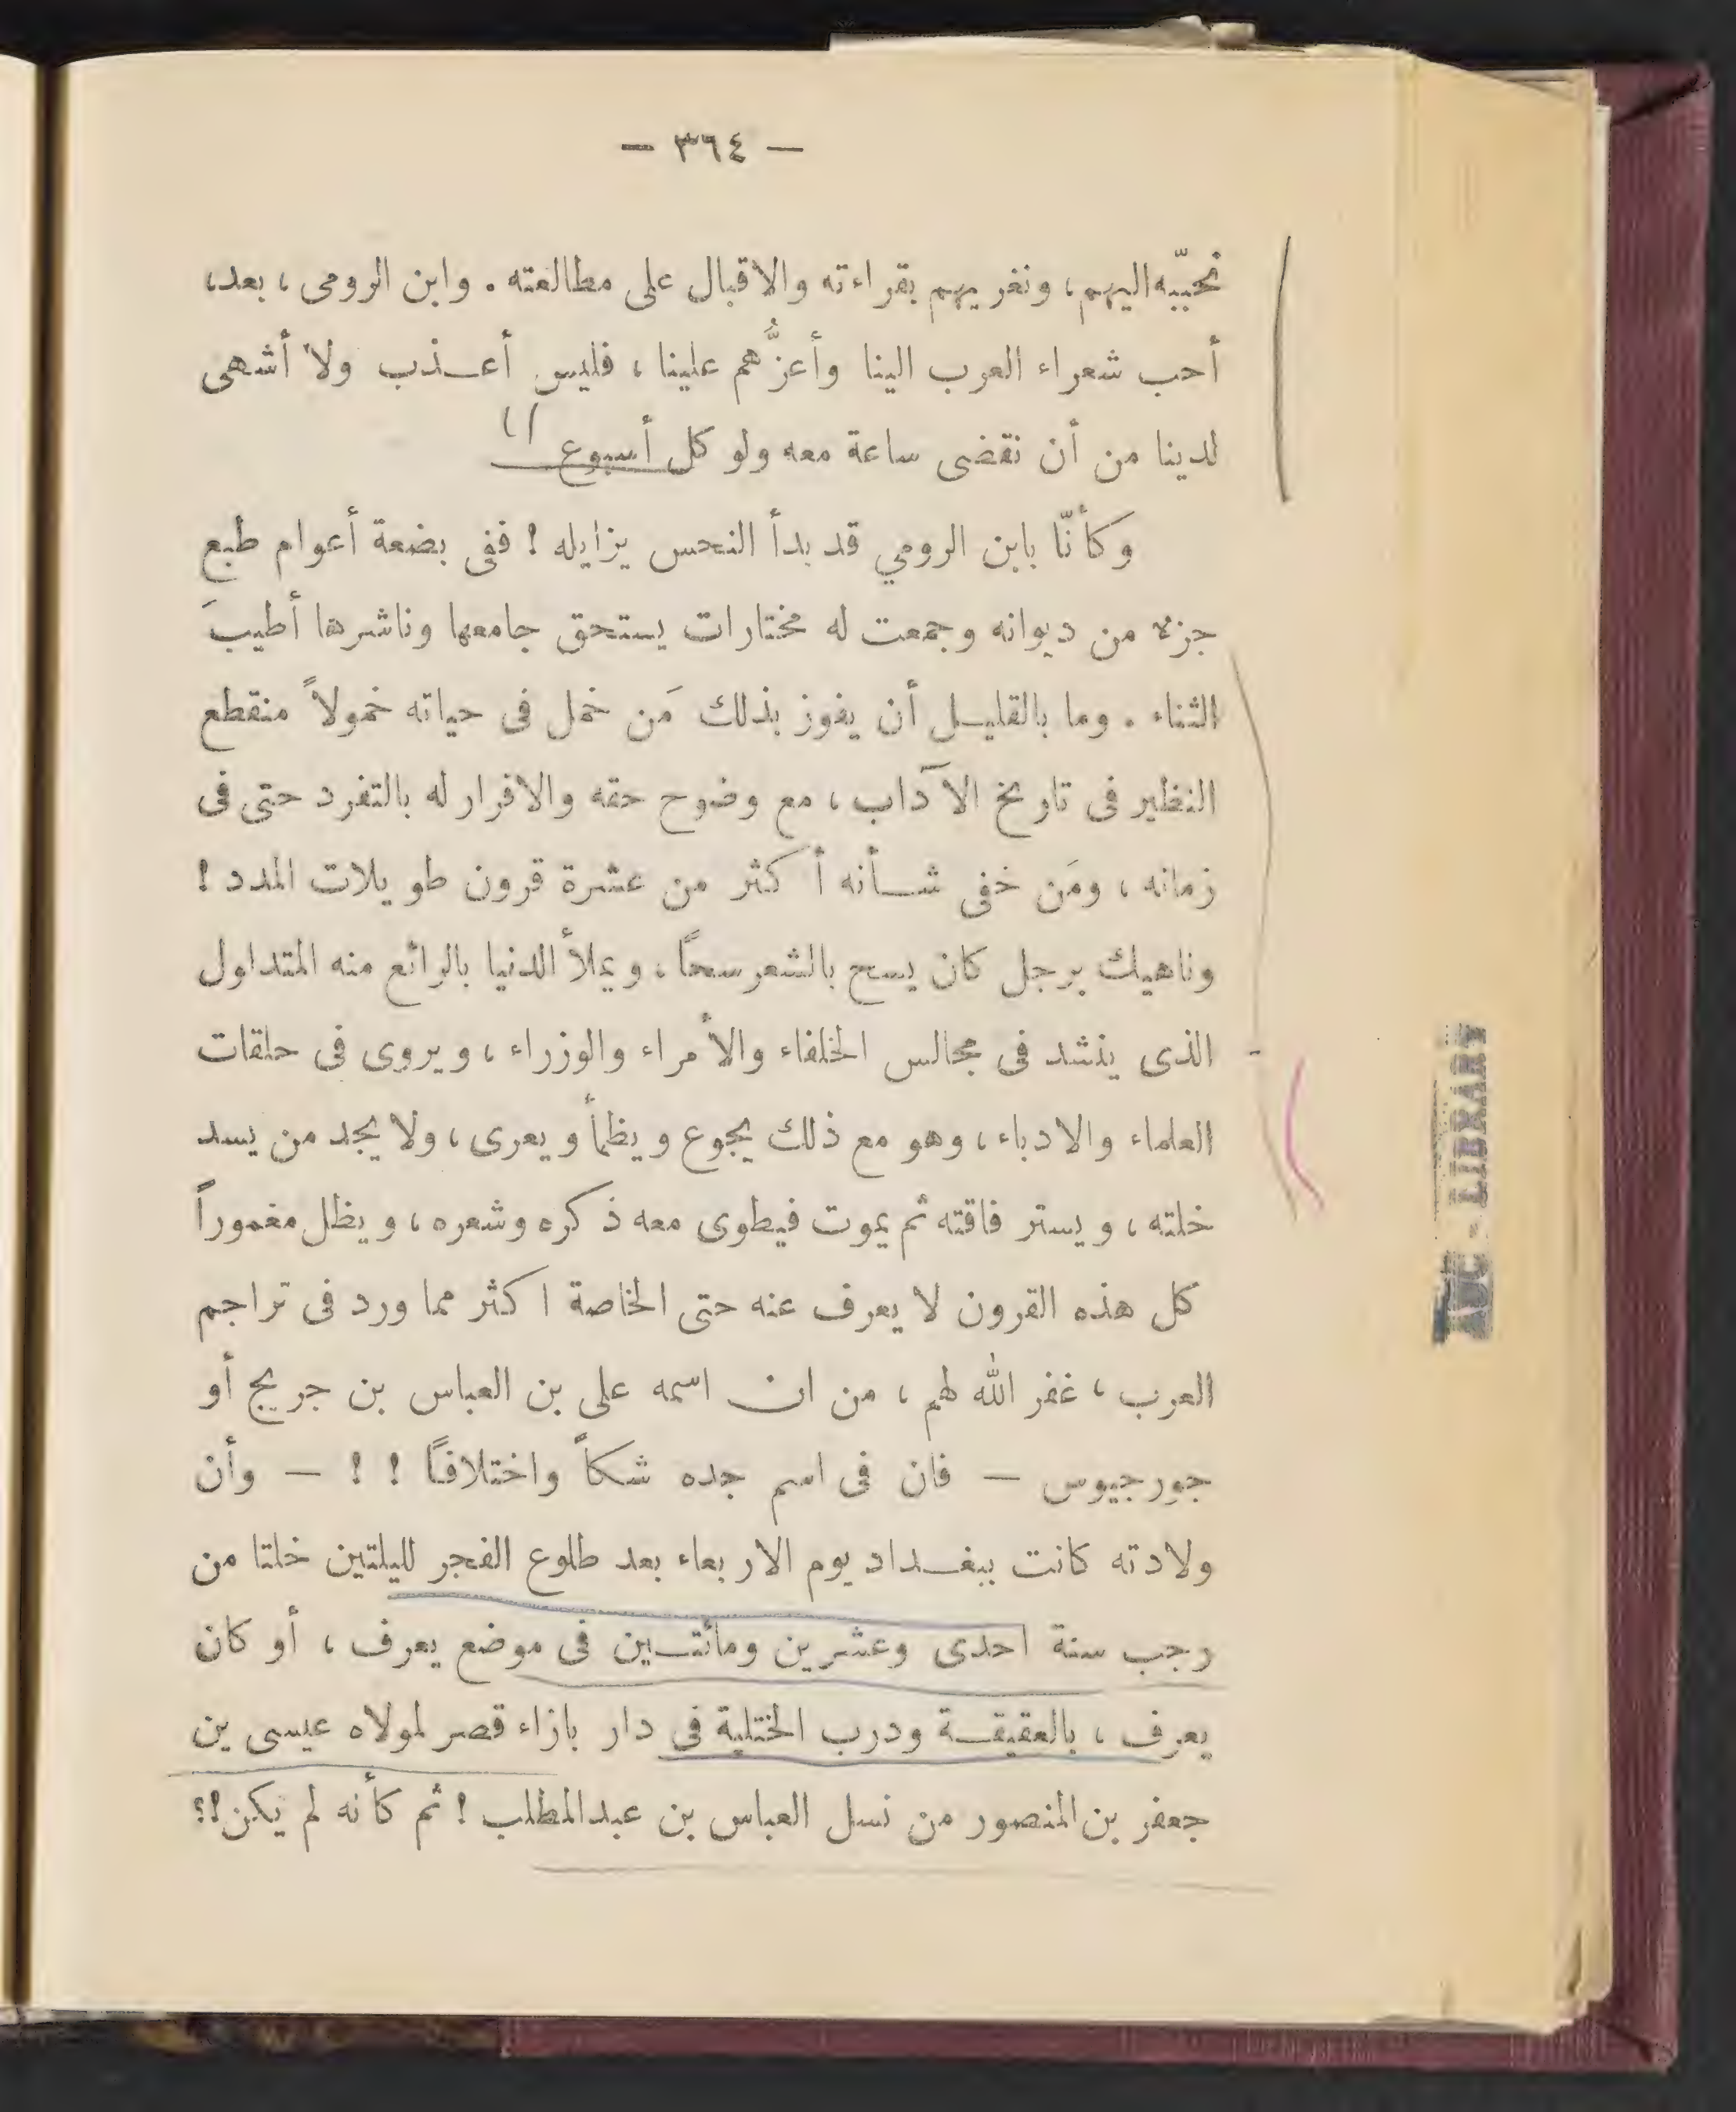 — ٣٦٤ —
نحببّه اليهم، ونغريهم بقراءته والاقبال على مطالعته . وابن الرومى ، بعد،
أحب شعراء العرب الينا وأعزُّهم علينا ، فليس أعذب ولا أشهى
لدينا من أن نقضى ساعة معه ولو كل أسبوع
وكأنّا بابن الرومي قد بدأ النحس يزايله ! ففى بضعة أعوام طبع
جزء من ديوانه وجمعت له مختارات يستحق جامعها وناشرها أطيبَ
الثناء . وما بالقليل أن يفوز بذلك مَن خمل فى حياته خمولاً منقطع
النظير فى تاريخ الآداب ، مع وضوح حقه والاقرار له بالتفرد حتى فى
زمانه ، ومَن خفى شأنه أكثر من عشرة قرون طويلات المدد !
وناهيك برجل كان يسح بالشعر سحاً ، ويملأ الدنيا بالرائع منه المتداول
الذى ينشد فى مجالس الخلفاء والأمراء والوزراء ، ويروى فى حلقات
العلماء والادباء ، وهو مع ذلك يجوع ويظمأ ويعرى ، ولا يجد من يسد
خلته ، ويستر فاقته ثم يموت فيطوى معه ذكره وشعره ، ويظل مغموراً
كل هذه القرون لا يعرف عنه حتى الخاصة اكثر مما ورد فى تراجم
العرب ، غفر الله لهم ، من ان اسمه على بن العباس بن جريج أو
جورجيوس — فان فى اسم جده شكاً واختلافاً ! ! — وأن
ولادته كانت ببغداد يوم الاربعاء بعد طلوع الفجر لليلتين خلتا من
رجب سنة احدى وعشرين ومائتين فى موضع يعرف ، أو كان
يعرف ، بالعقيقة ودرب الختلية فى دار بازاء قصر لمولاه عيسى بن
جعفر بن المنصور من نسل العباس بن عبد المطلب ! ثم كأنه لم يكن !؟
AUC - LIBRARY